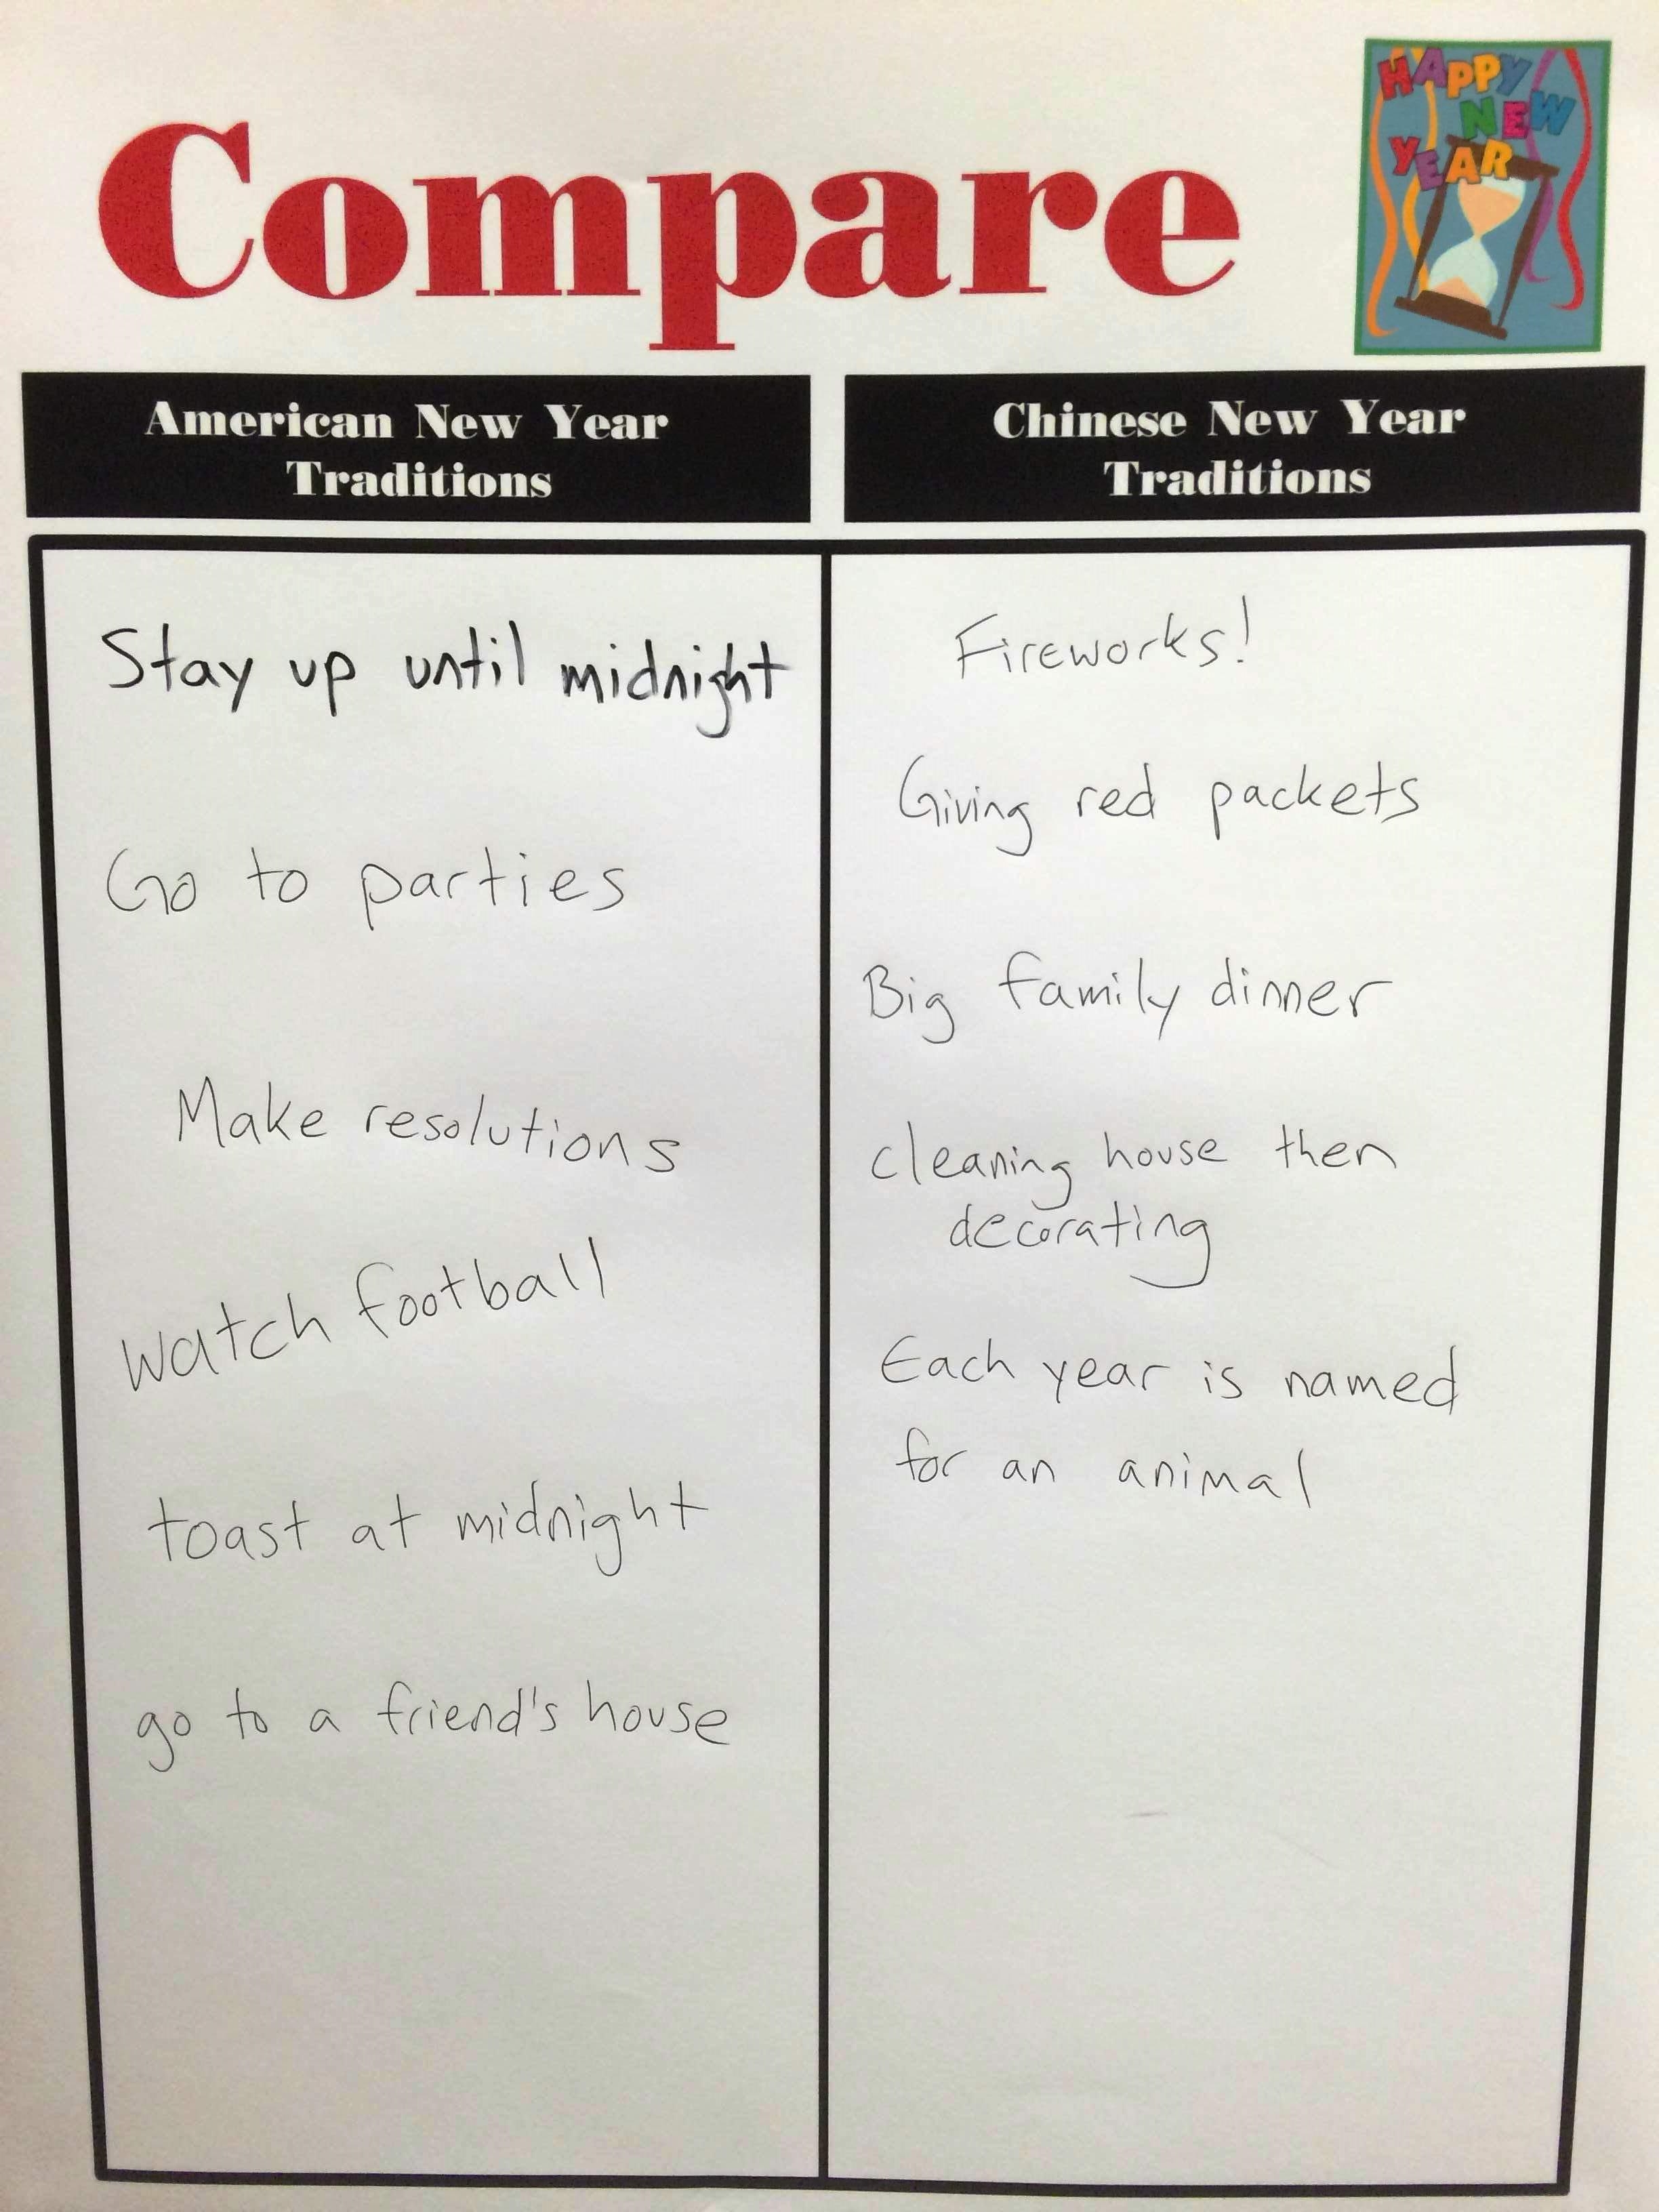 Compare
HAPPY
NEW
YEAR
American New Year
Traditions
Stay up until midnight
Go to parties
Make resolutions
watch football
toast at midnight
go to a friend's house
Chinese New Year
Traditions
Fireworks!
Giving red packets
Big family dinner
cleaning house then
decorating
Each year is named
for an animal